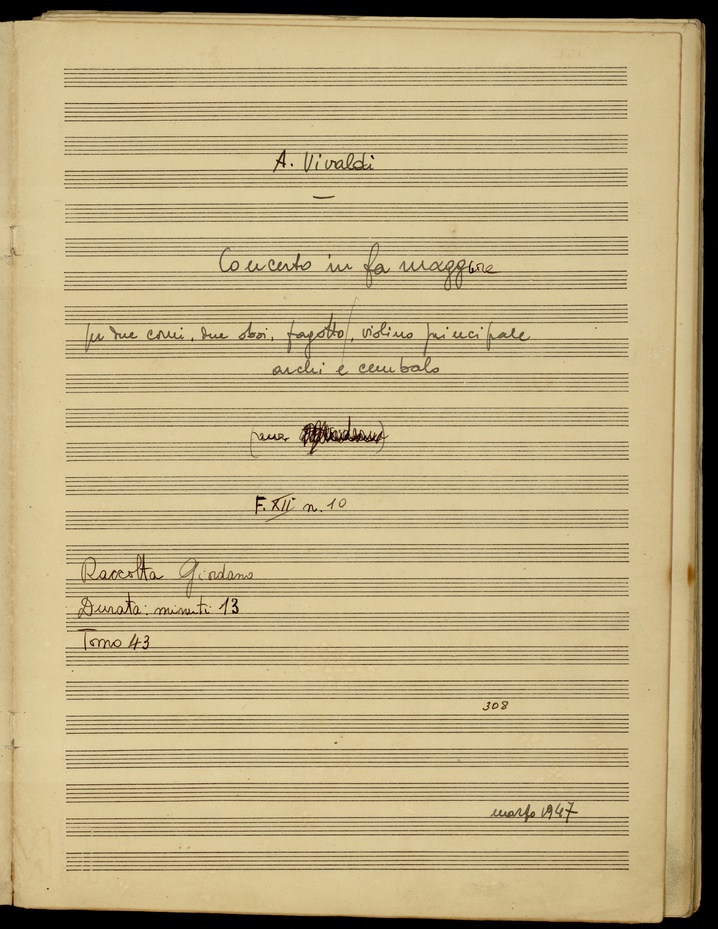 A. Vivaldi
Concerto in fa maggiore
per due corni, due oboi, fagotto, violino principale
archi e cembalo
F. XII n. 10
Raccolta Giordano
Durata: minuti 13
Tomo 43
308
marzo 1947